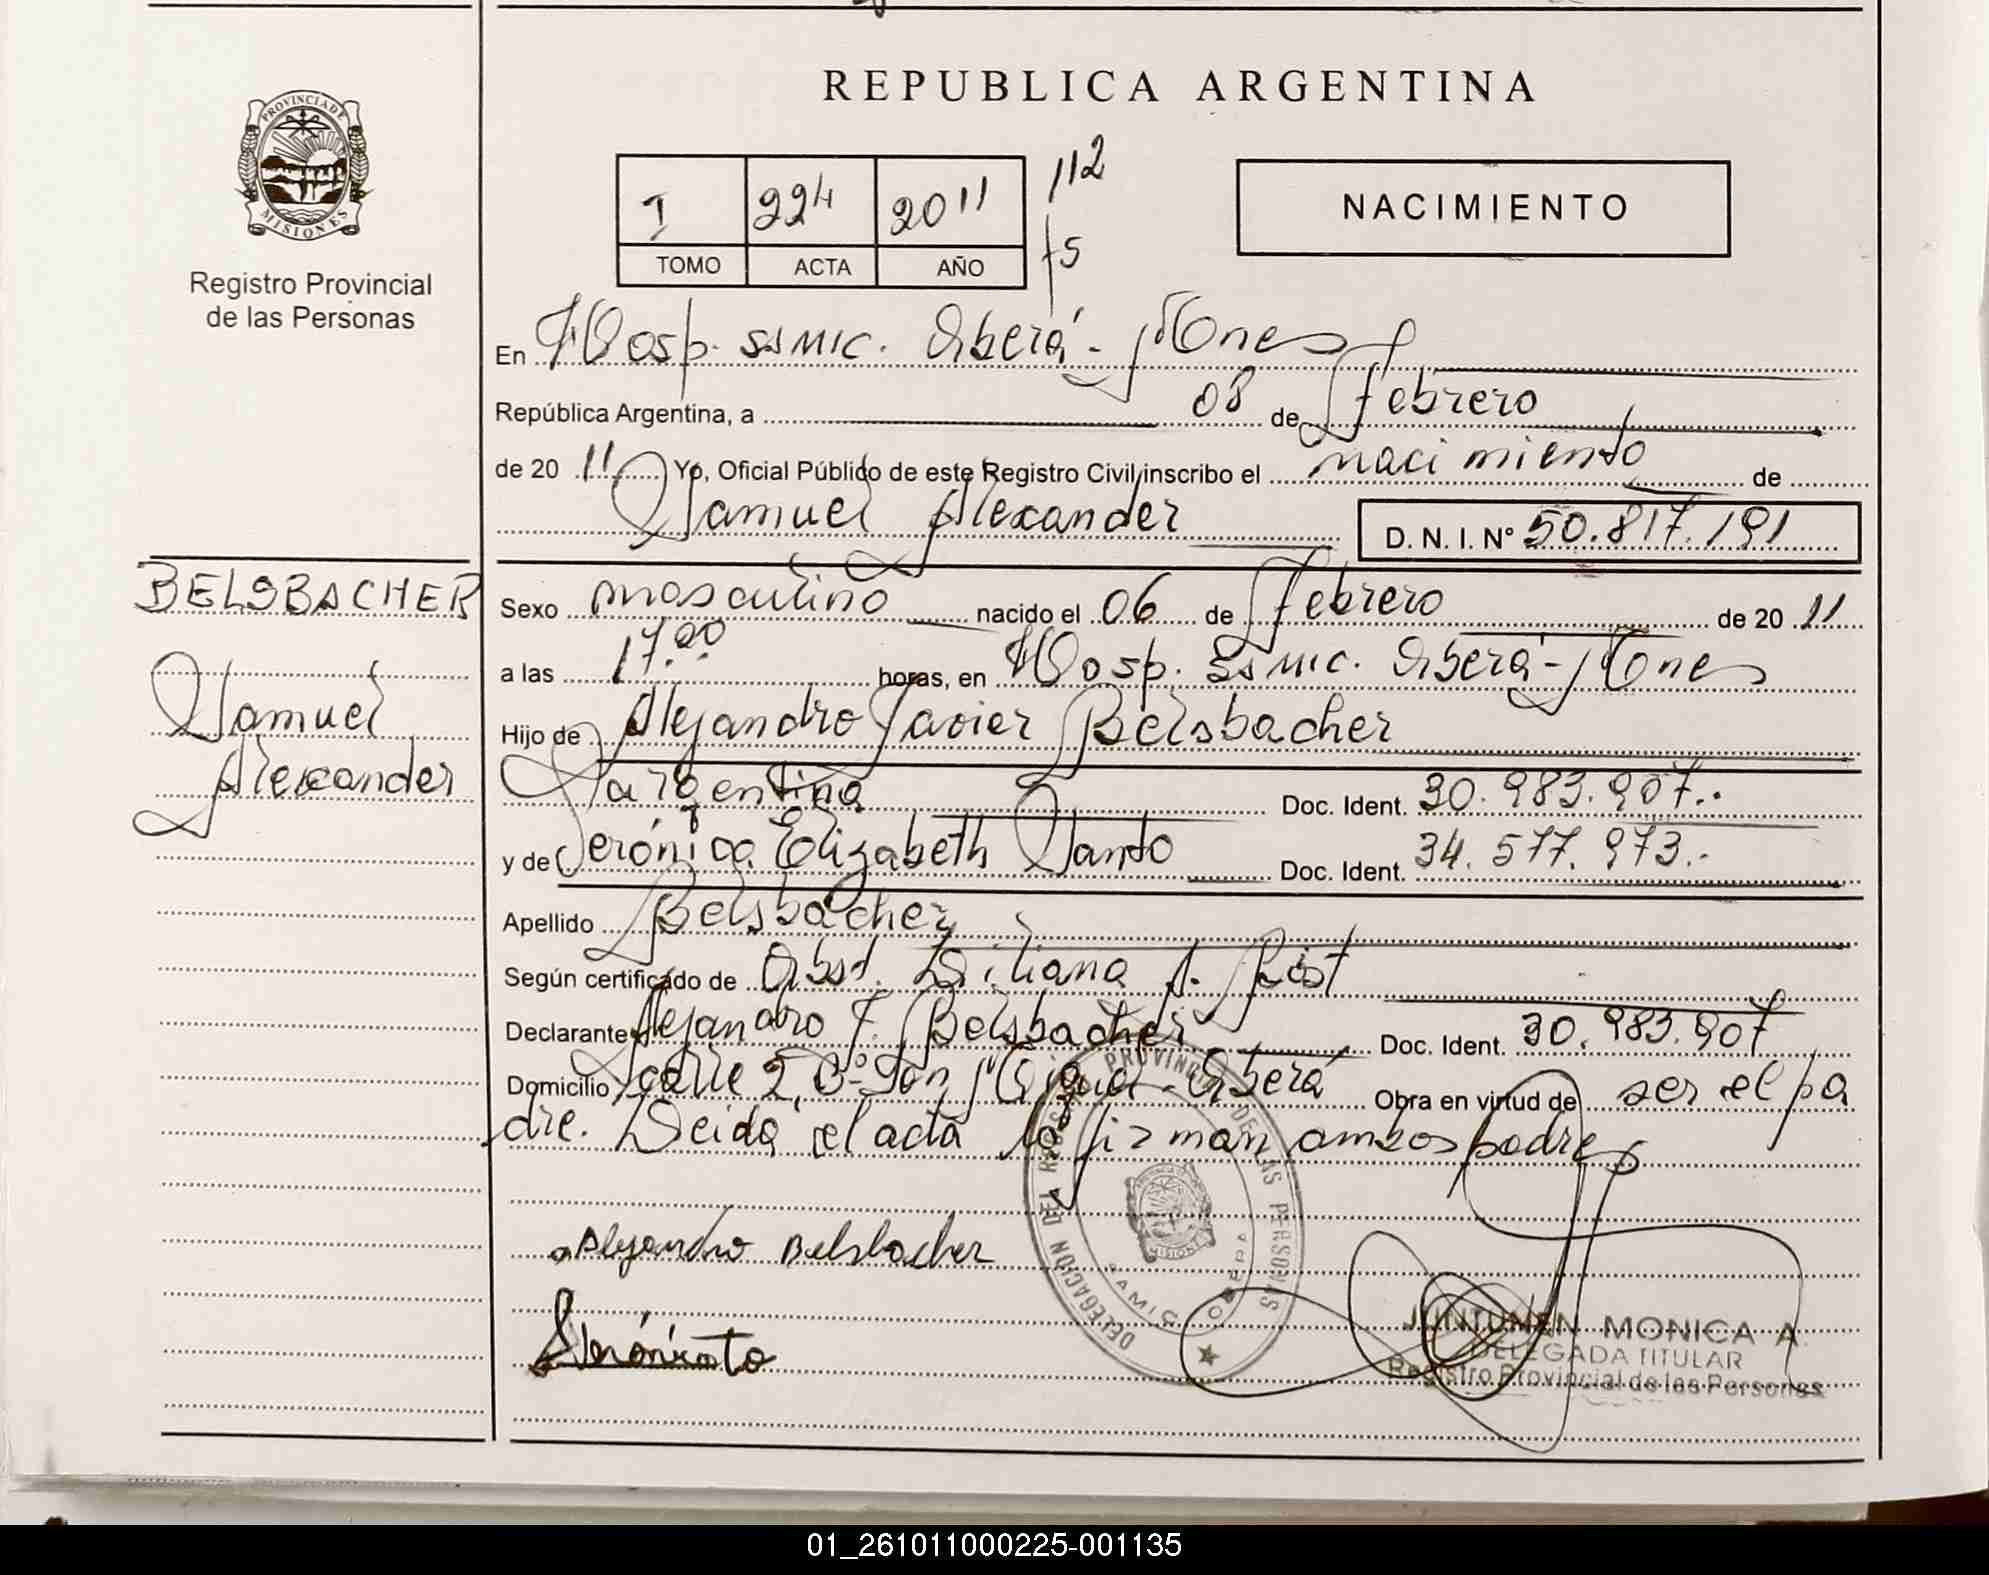 REPUBLICA ARGENTINA
PROVINCIA DE
MISIONES
Registro Provincial
de las Personas
I 224 2011 112
TOMO ACTA AÑO f5
NACIMIENTO
En Hosp. SSMIC. Oberá - Mnes
República Argentina, a 08 de Febrero
de 20 11 Yo, Oficial Público de este Registro Civil inscribo el nacimiento de
Samuel Alexander D. N. I. Nº 50.817.191
BELSBACHER
Samuel
Alexander
Sexo masculino nacido el 06 de Febrero de 20 11
a las 17.00 horas, en Hosp. SSMIC. Oberá - Mnes
Hijo de Alejandro Javier Belsbacher
argentina Doc. Ident. 30.983.907.-
y de Verónica Elizabeth Santo Doc. Ident. 34.577.973.-
Apellido Belsbacher
Según certificado de Obst. Liliana A. Rist
Declarante Alejandro J. Belsbacher Doc. Ident. 30.983.907
Domicilio calle 2, Bº San Miguel - Oberá Obra en virtud de ser el pa
dre. Leida el acta la firman ambos padres
Alejandro Belsbacher
DELEGACION DEL REGISTRO PROVINCIAL DE LAS PERSONAS
SAMIC OBERA
MISIONES
JUNTUNEN MONICA A.
DELEGADA TITULAR
Registro Provincial de las Personas
01_261011000225-001135